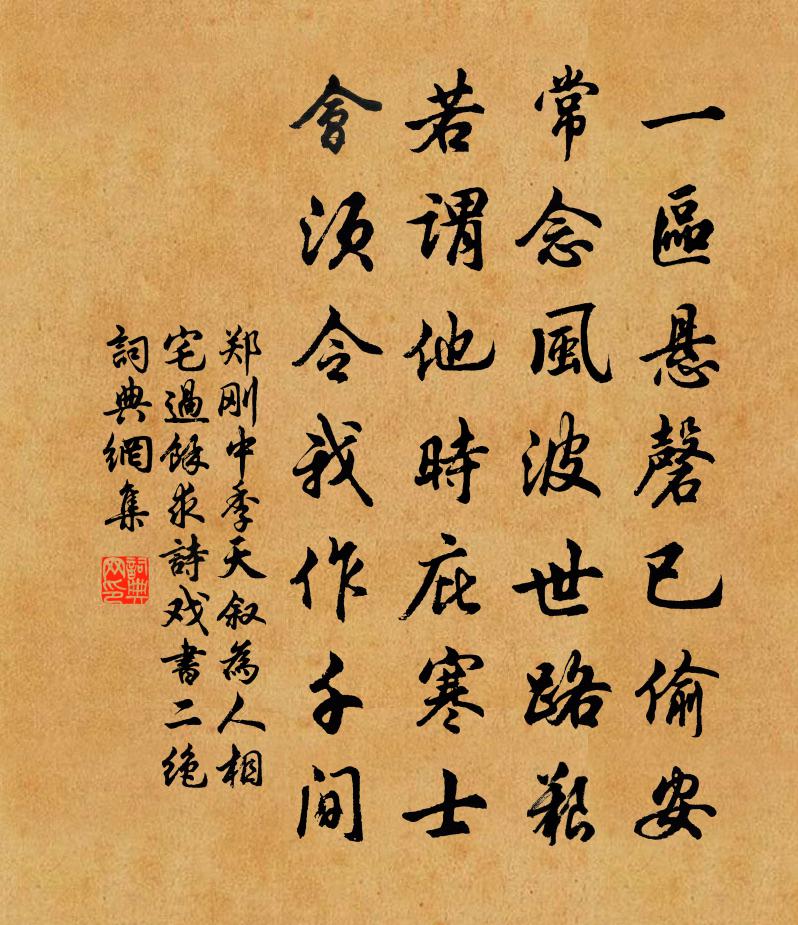 一區懸磬已偷安
常念風波世路艱
若謂他時庇寒士
會須令我作千間
郑刚中季天叙為人相
宅過餘求詩戏書二绝
詞典網集
詞典
网印